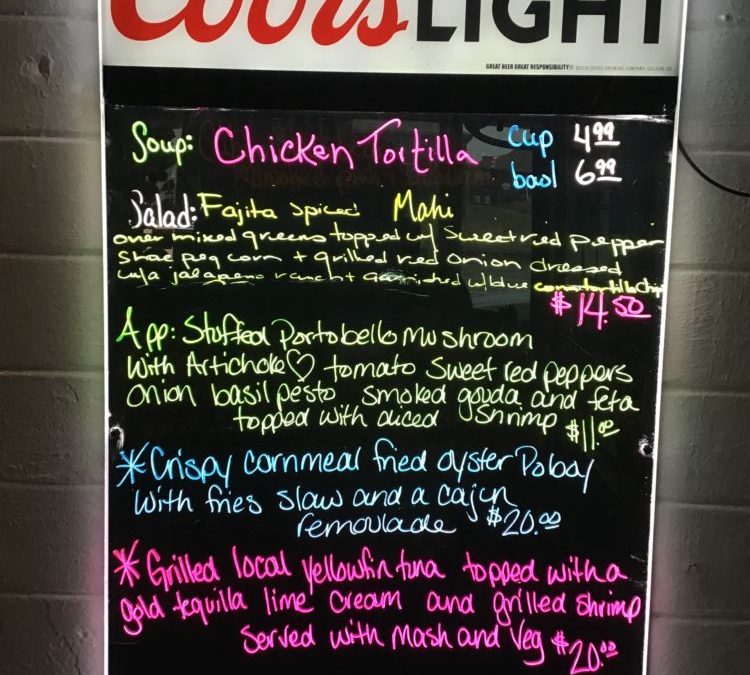 Coors LIGHT
GREAT BEER GREAT RESPONSIBILITY®
Soup: Chicken Tortilla cup 4.99
bowl 6.99
Salad: Fajita Spiced Mahi
over mixed greens topped w/ Sweet red pepper
Shoe peg corn + grilled red onion dressed
w/a jalapeno ranch + garnished w/blue corn tortilla chips
$14.50
App: Stuffed Portobello Mushroom
With Artichoke ♡ tomato Sweet red peppers
Onion basil pesto smoked gouda and feta
topped with diced Shrimp $11.00
*Crispy cornmeal fried oyster Poboy
With fries slaw and a cajun
remoulade $20.00
*Grilled local yellowfin tuna topped with a
gold tequilla lime cream and grilled shrimp
Served with Mash and Veg $20.00